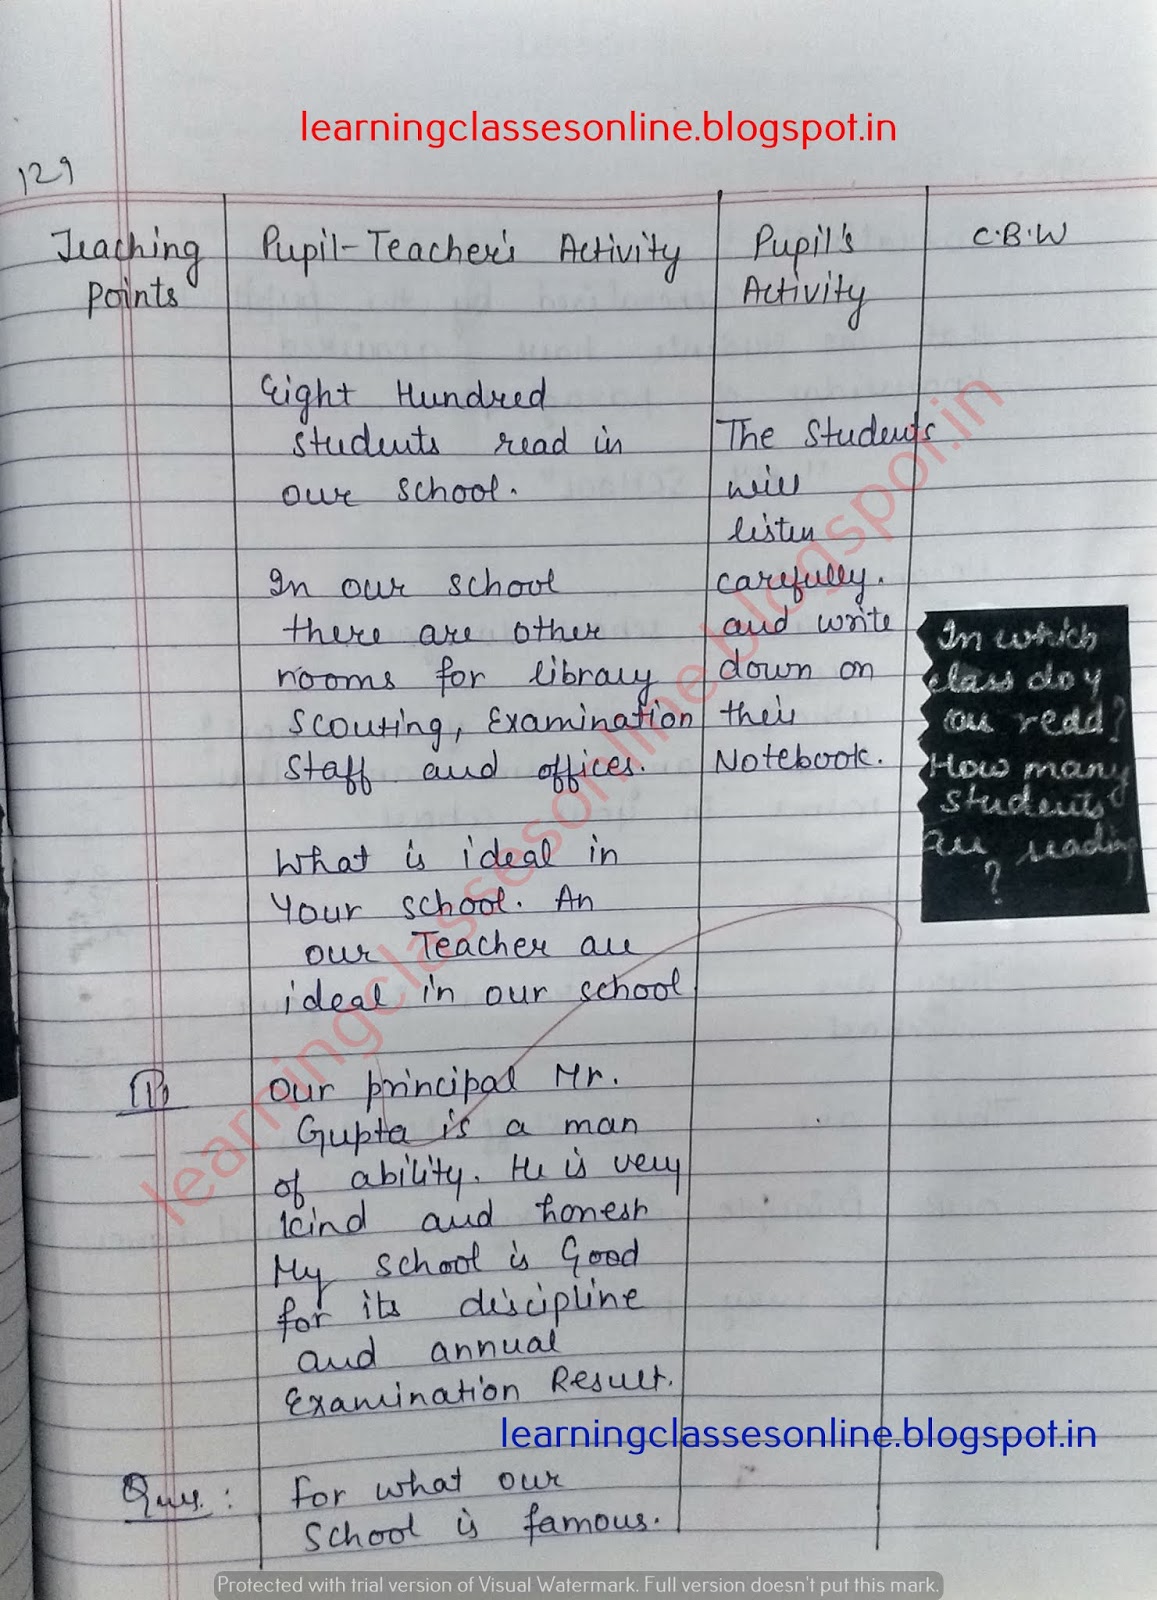 learningclassesonline.blogspot.in
129
Teaching
Points
Pupil-Teacher's Activity
Pupil's
Activity
C.B.W
Eight Hundred
students read in
our school.
In our school
there are other
rooms for library
Scouting, Examination
Staff and offices.
What is ideal in
Your school. An
our Teacher are
ideal in our school
The Students
will
listen
carefully.
and write
down on
their
Notebook.
In which
class do y
ou read?
How many
students
are reading
?
Our principal Mr.
Gupta is a man
of ability. He is very
kind and honest
My school is Good
for its discipline
and annual
Examination Result.
learningclassesonline.blogspot.in
Ques. :
For what our
School is famous.
learningclassesonline.blogspot.in
Protected with trial version of Visual Watermark. Full version doesn't put this mark.